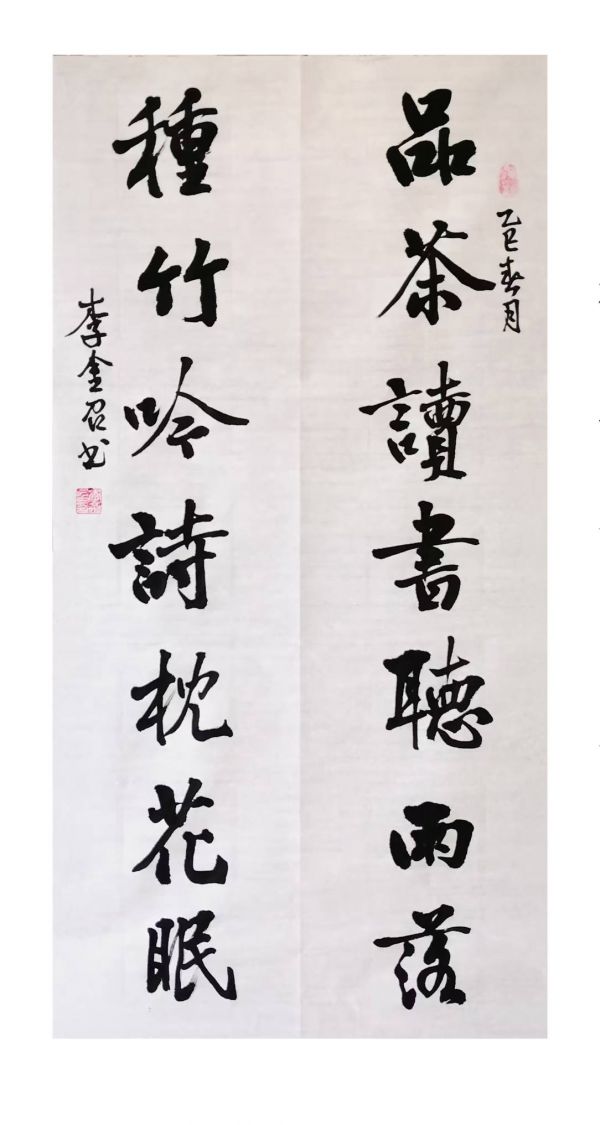 乙巳春月
品茶讀書聽雨落
種竹吟詩枕花眠
李金召书